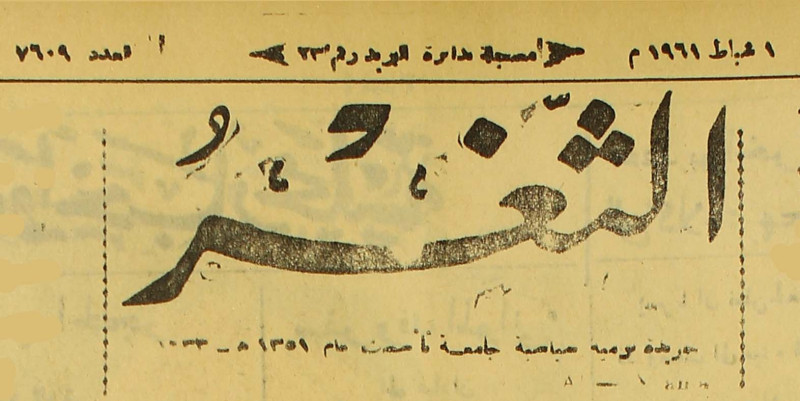 ١ شباط ١٩٦١ م مسجلة بدائرة البريد رقم ٢٣ العدد ٧٦٠٩
الثَّغْرُ
جريدة يومية سياسية جامعة تأسست عام ١٣٥١ هـ